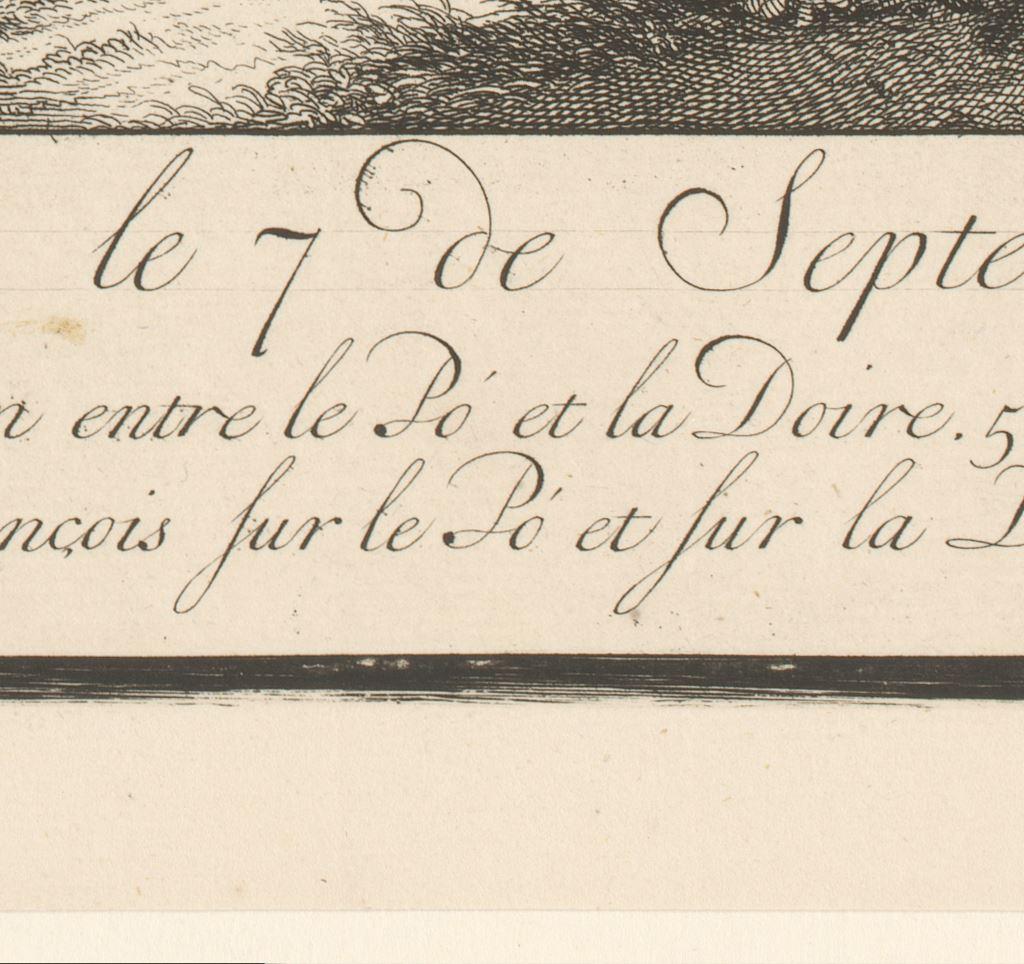 le 7 de Septe
n entre le Pó et la Doire. 5
nçois sur le Pó et sur la D